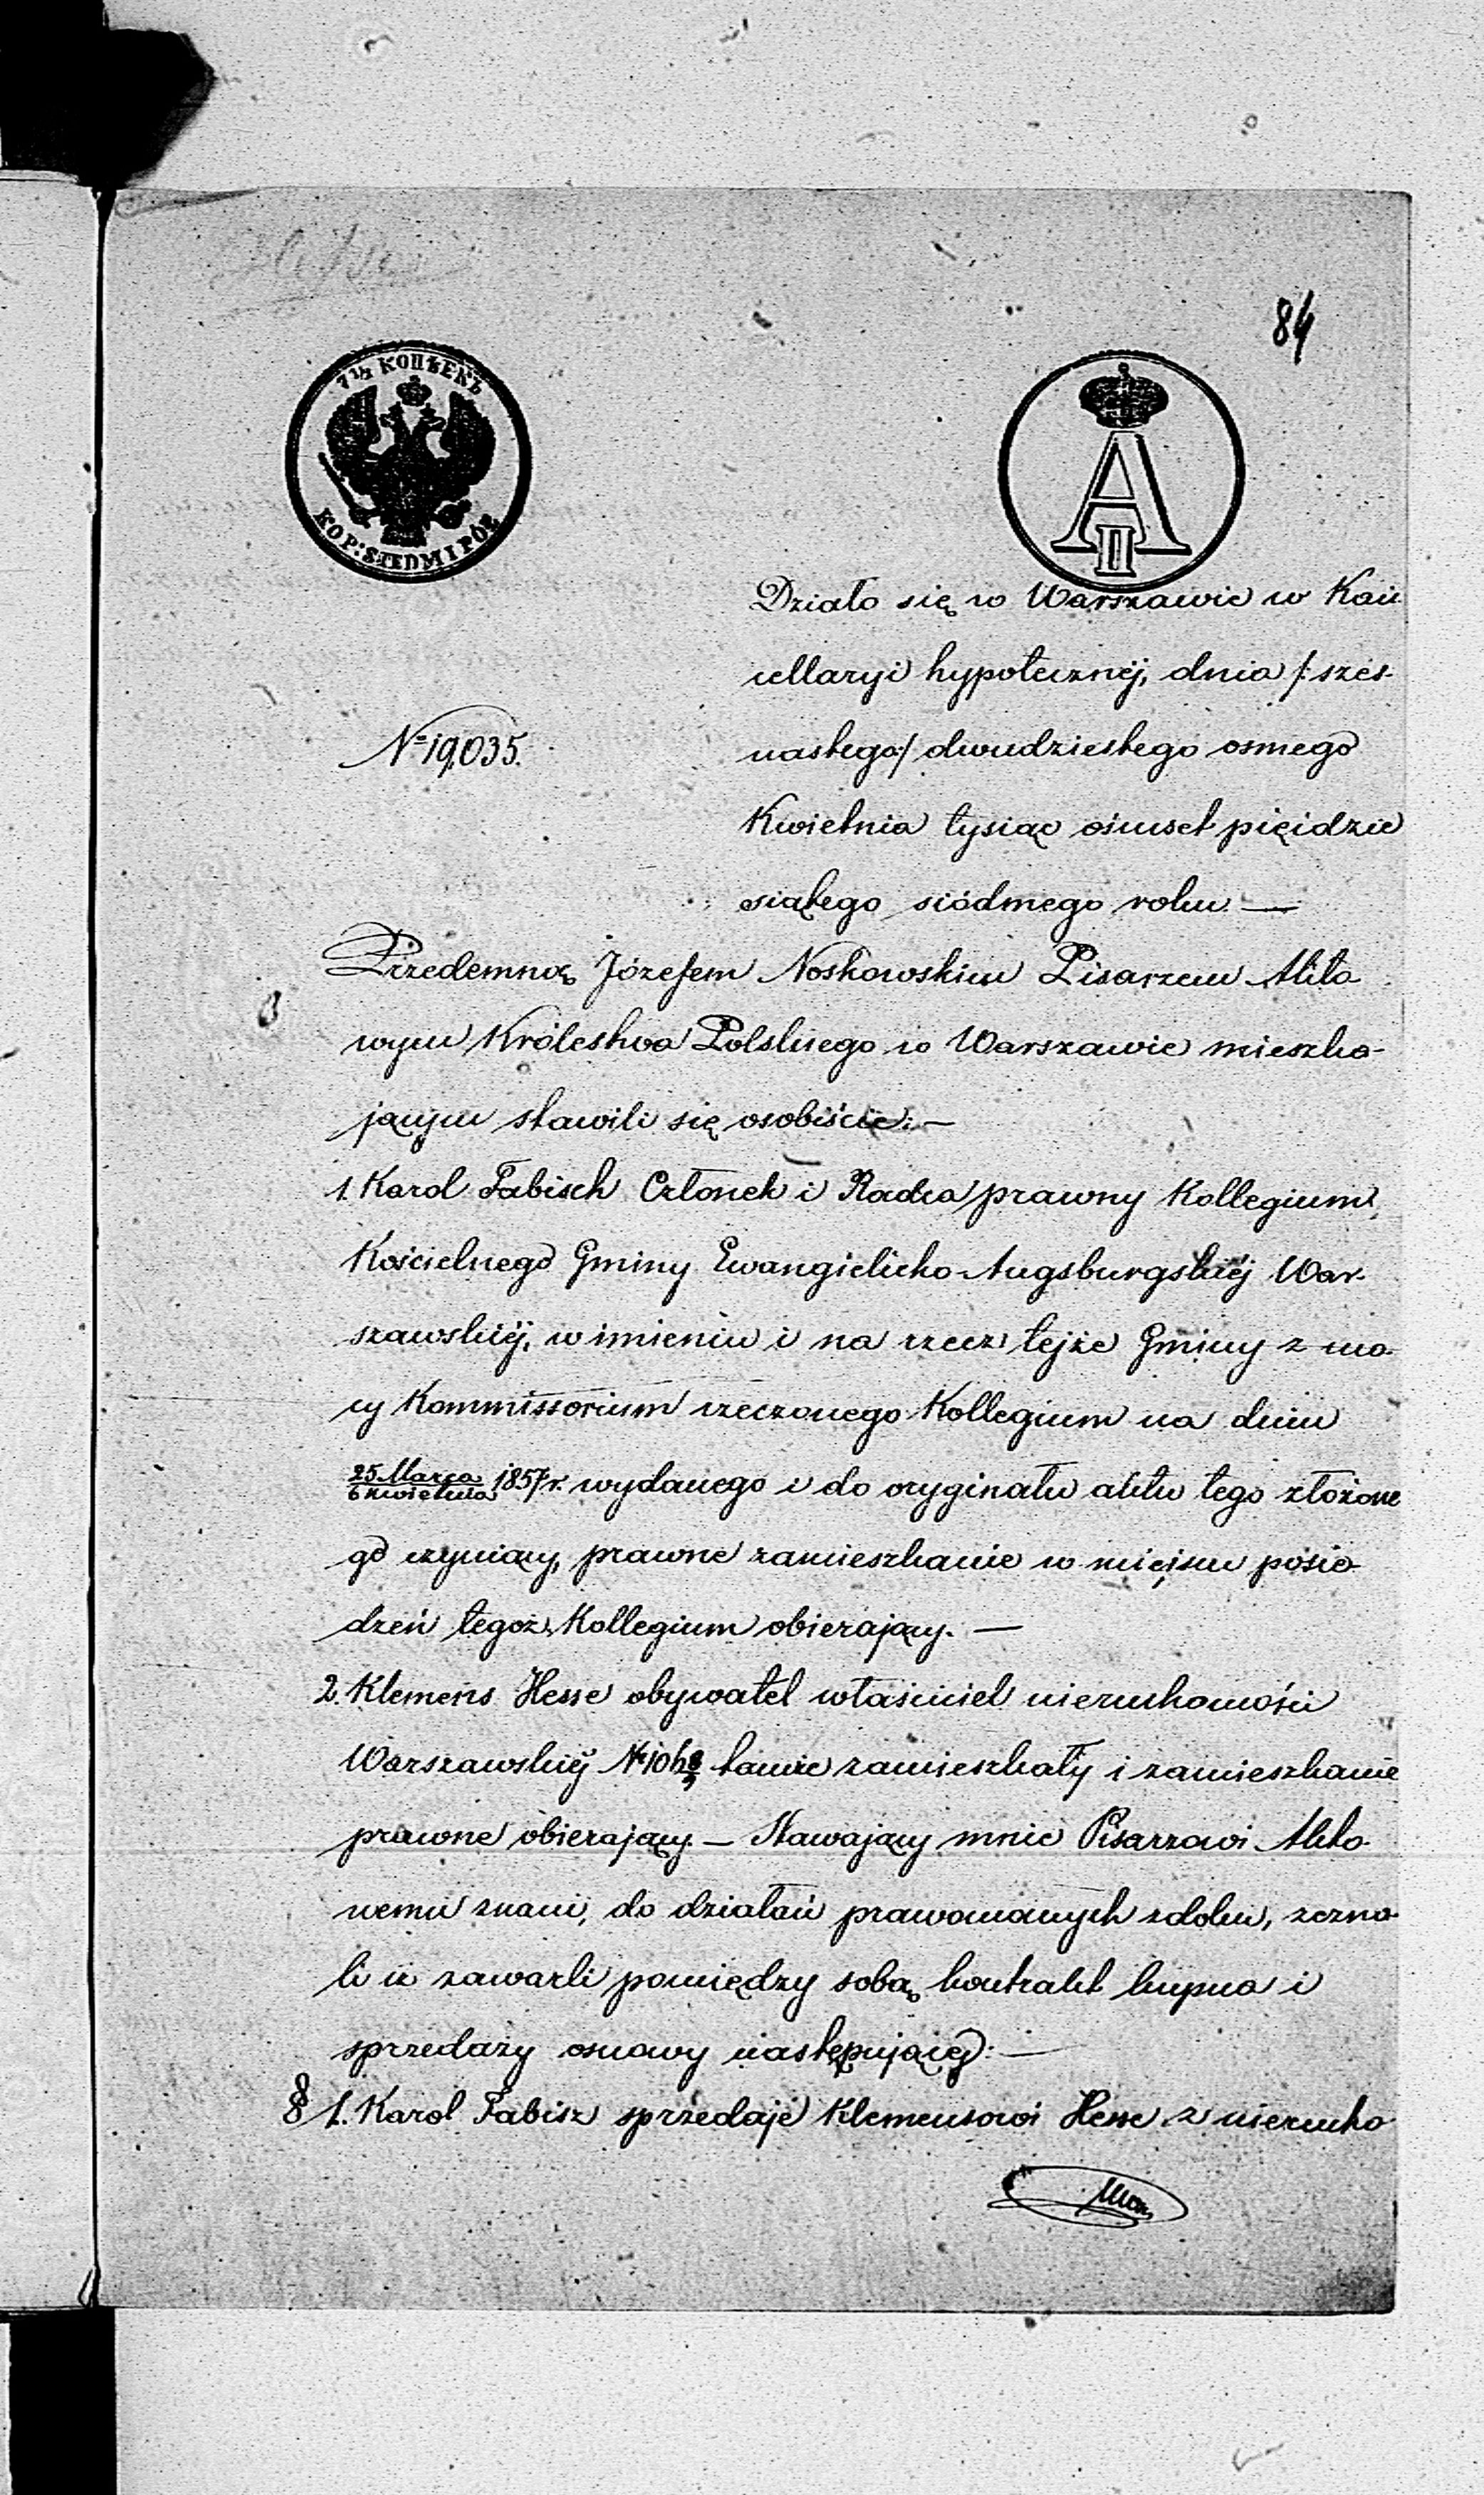 84
7 1/2 КОПѢЕКЪ
KOP: SIEDM I PÓŁ
A II
Działo się w Warszawie w Kan
cellaryi hypotecznéj, dnia /:szes-
nastego:/ dwudziestego osmego
Nº 19,035.
Kwietnia tysiąc ośmset pięćdzie
siątego siódmego roku —
Przedemną Józefem Noskowskim Pisarzem Akto
wym Królestwa Polskiego w Warszawie mieszka-
jącym stawili się osobiście: —
1. Karol Tabisch Członek i Radca prawny Kollegium
Kościelnego Gminy Ewangielicko-Augsburgskiéj War-
szawskiéj, w imieniu i na rzecz tejże Gminy z mo-
cy Kommissorium rzeczonego Kollegium na dniu
25 Marca / 6 Kwietnia 1857 r. wydanego i do oryginału aktu tego złożone
go czyniący, prawne zamieszkanie w miejscu posie-
dzeń tegoż Kollegium obierający. —
2. Klemens Hesse obywatel właściciel nieruchomości
Warszawskiéj tamże zamieszkały i zamieszkanie
prawne obierający — Stawający mnie Pisarzowi Akto-
wemu znani, do działań prawomocnych zdolni, zezna-
li iż zawarli pomiędzy sobą kontrakt kupna i
sprzedaży osnowy następującéj: —
§ 1. Karol Tabisz sprzedaje Klemensowi Hesse z nierucho